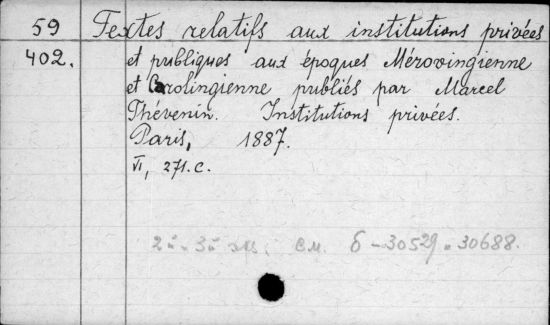 59 Textes relatifs aux institutions privées
402. et publiques aux époques Mérovingienne
et Carolingienne publiés par Marcel
Thévenin. Institutions privées.
Paris, 1887.
VI, 271.c.
2й-3й экз. см. б-30529 30688.